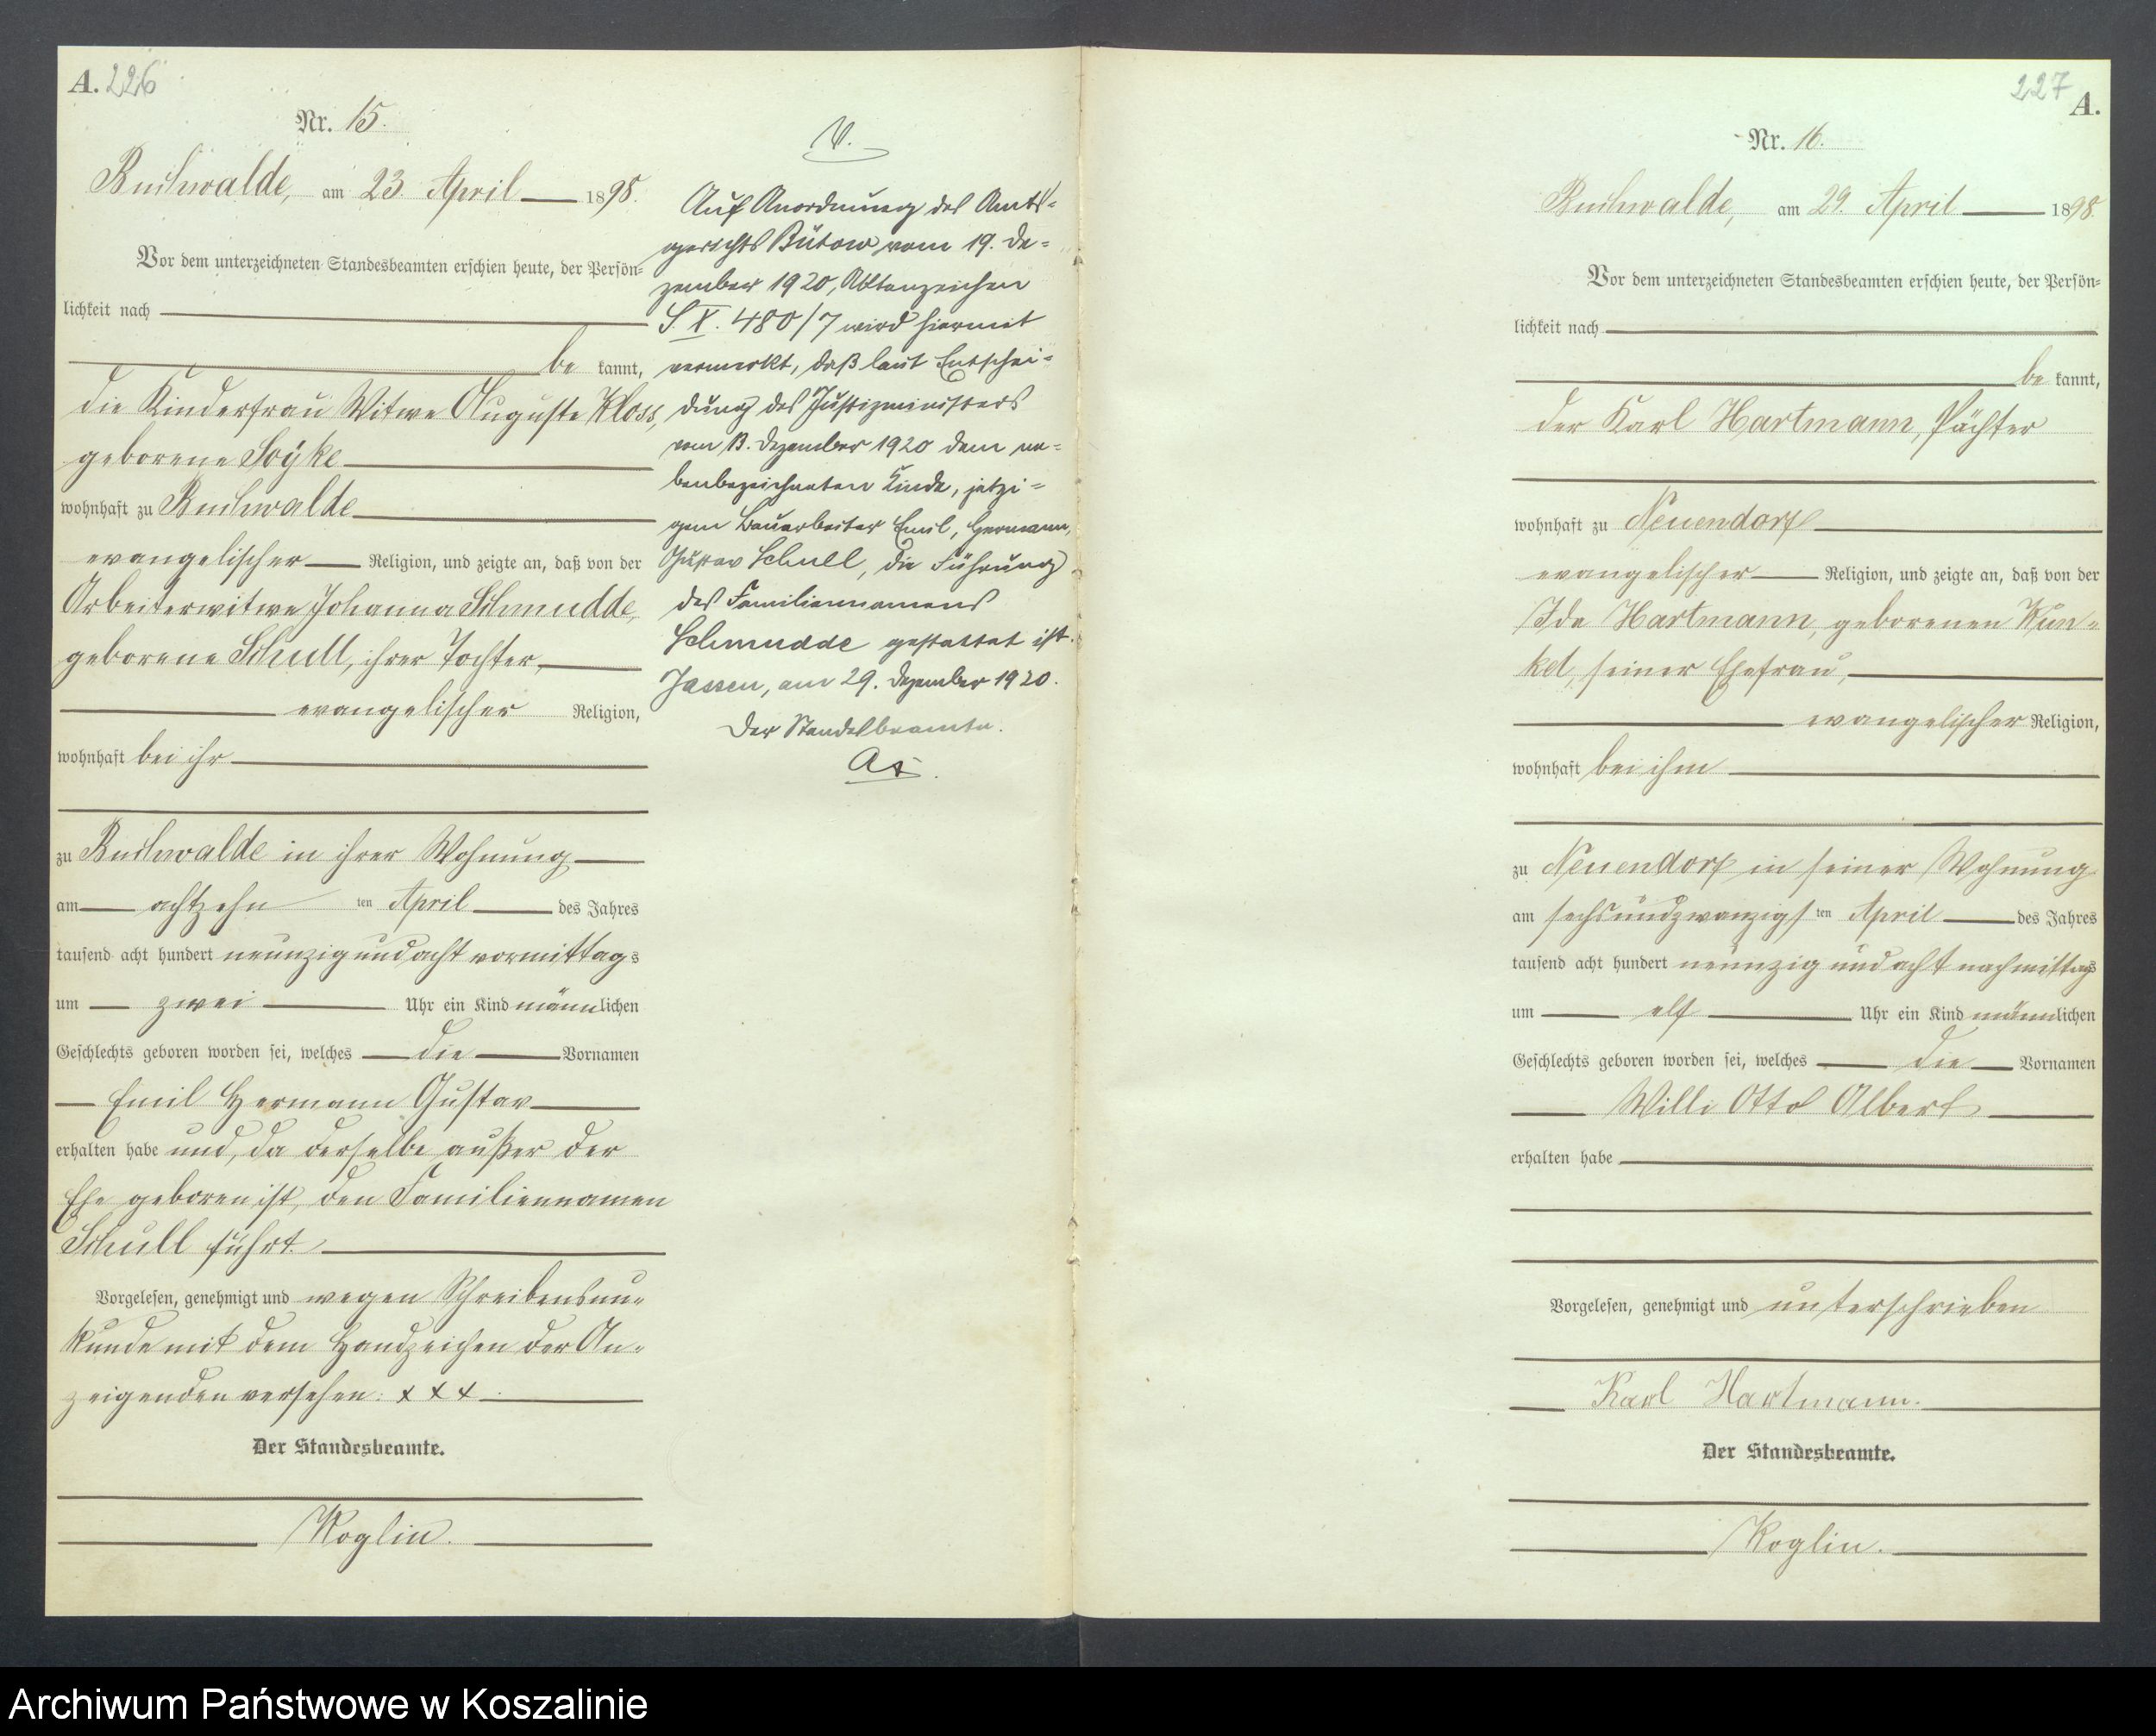 A. 226
Nr. 15.
Buchwalde, am 23. April 1898.
Vor dem unterzeichneten Standesbeamten erschien heute, der Persön-
lichkeit nach
be kannt,
die Kinderfrau Witwe Auguste Kloss,
geborene Soÿke
wohnhaft zu Buchwalde
evangelischer Religion, und zeigte an, daß von der
Arbeiterwitwe Johanna Schmudde,
geborene Schull, ihrer Tochter,
evangelischer Religion,
wohnhaft bei ihr
zu Buchwalde in ihrer Wohnung
am achtzehn ten April des Jahres
tausend acht hundert neunzig und acht vormittags
um zwei Uhr ein Kind männlichen
Geschlechts geboren worden sei, welches die Vornamen
Emil Hermann Gustav
erhalten habe und, da derselbe außer der
Ehe geboren ist, den Familiennamen
Schull führt.
Vorgelesen, genehmigt und wegen Schreibensun-
kunde mit dem Handzeichen der An-
zeigenden versehen: x x x
Der Standesbeamte.
Koglin.
V.
Auf Anordnung des Amts-
gerichts Bütow vom 19. De-
zember 1920, Aktenzeichen
S. X. 480/7 wird hiermit
vermerkt, daß laut Entschei-
dung des Justizministers
vom 13. Dezember 1920 dem ne-
benbezeichneten Kinde, jetzi-
gem Bauarbeiter Emil, Hermann,
Gustav Schull, die Führung
des Familiennamens
Schmudde gestattet ist.
Jassen, am 29. Dezember 1920.
Der Standesbeamte.
227 A.
Nr. 16.
Buchwalde, am 29. April 1898.
Vor dem unterzeichneten Standesbeamten erschien heute, der Persön-
lichkeit nach
be kannt,
der Karl Hartmann, Pächter
wohnhaft zu Neuendorf
evangelischer Religion, und zeigte an, daß von der
Ida Hartmann, geborenen Kun-
kel, seiner Ehefrau,
evangelischer Religion,
wohnhaft bei ihm
zu Neuendorf in seiner Wohnung
am sechsundzwanzigs ten April des Jahres
tausend acht hundert neunzig und acht nachmittags
um elf Uhr ein Kind männlichen
Geschlechts geboren worden sei, welches die Vornamen
Willi Otto Albert
erhalten habe
Vorgelesen, genehmigt und unterschrieben
Karl Hartmann.
Der Standesbeamte.
Koglin.
Archiwum Państwowe w Koszalinie